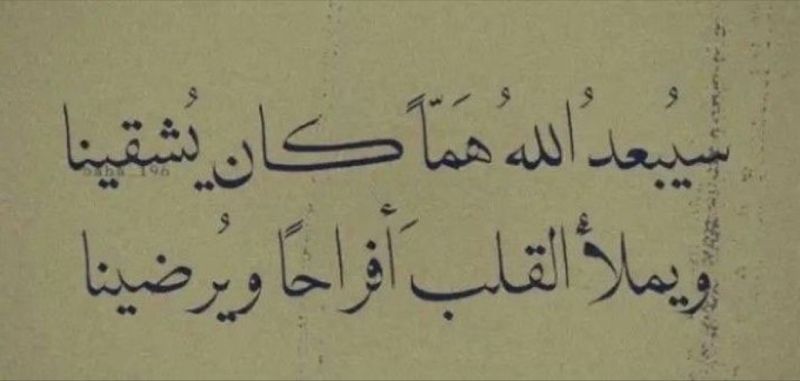 سيُبعدُ اللهُ هَمّاً كان يُشقينا
ويملأ القلبَ أفراحًا ويُرضينا